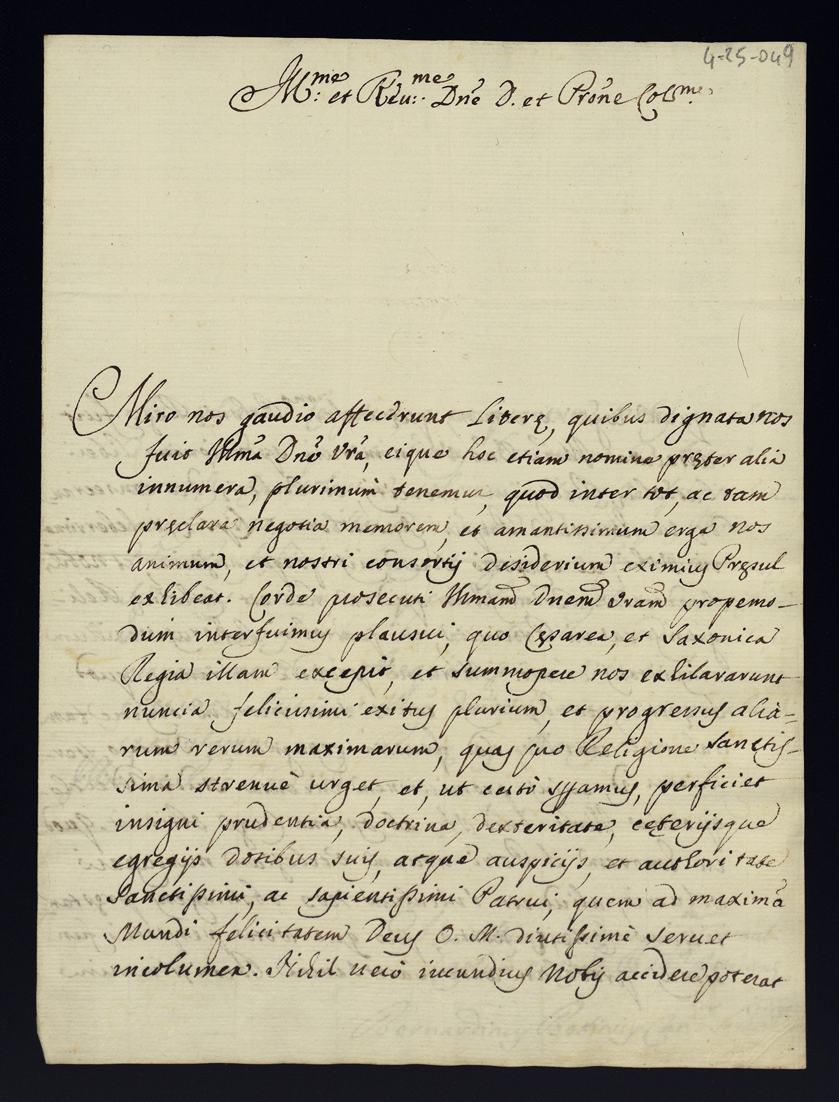 4-25-049
Ill.me et Reu.me Dne D. et Prone Col.me
Miro nos gaudio affecerunt Literę, quibus dignata nos
fuit Illma Dno Vra, eique hoc etiam nomine pręter alia
innumera, plurimum tenemur, quod inter tot, ac tam
pręclara negotia memorem, et amantissimum erga nos
animum, et nostri consortij desiderium eximius Pręsul
exhibeat. Corde prosecuti Illmam Dnem Vram propemo-
dum interfuimus plausui, quo Cęsarea, et Saxonica
Regia illam excepit, et summopere nos exhilararunt
nuncia felicissimi exitus plurium, et progressus alia-
rum rerum maximarum, quas pro Religione sanctis-
sima strenuè urget, et, ut certò speramus, perficiet
insigni prudentia, doctrina, dexteritate, ceterijsque
egregijs dotibus suis, atque auspicijs, et authoritate
Sanctissimi, ac sapientissimi Patrui, quem ad maximā
Mundi felicitatem Deus O. M. diutissimè seruet
incolumem. Nihil uerò iucundius Nobis accidere poterat